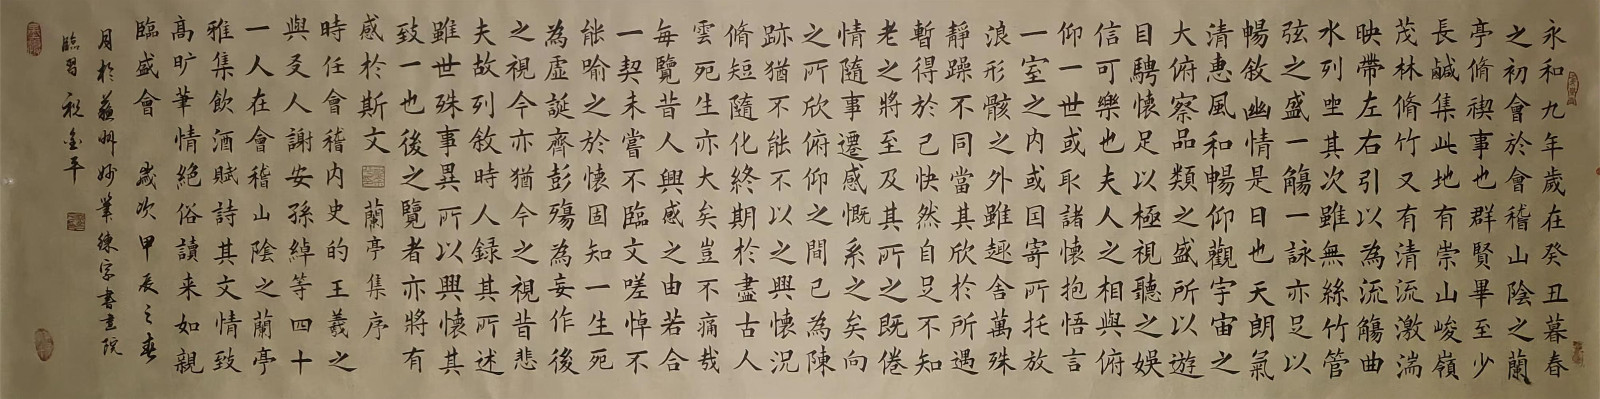 永和九年歲在癸丑暮春
之初會於會稽山陰之蘭
亭脩禊事也群賢畢至少
長鹹集此地有崇山峻嶺
茂林脩竹又有清流激湍
映帶左右引以為流觴曲
水列坐其次雖無絲竹管
弦之盛一觴一詠亦足以
暢敘幽情是日也天朗氣
清惠風和暢仰觀宇宙之
大俯察品類之盛所以遊
目騁懷足以極視聽之娛
信可樂也夫人之相與俯
仰一世或取諸懷抱悟言
一室之内或因寄所托放
浪形骸之外雖趣舍萬殊
靜躁不同當其欣於所遇
暫得於己快然自足不知
老之將至及其所之既倦
情隨事遷感慨系之矣向
之所欣俯仰之間已為陳
跡猶不能不以之興懷況
脩短隨化終期於盡古人
雲死生亦大矣豈不痛哉
每覽昔人興感之由若合
一契未嘗不臨文嗟悼不
能喻之於懷固知一生死
為虛誕齊彭殤為妄作後
之視今亦猶今之視昔悲
夫故列敘時人録其所述
雖世殊事異所以興懷其
致一也後之覽者亦將有
感於斯文 蘭亭集序
時任會稽内史的王羲之
與友人謝安孫綽等四十
一人在會稽山陰之蘭亭
雅集飲酒賦詩其文情致
高旷筆情絕俗讀来如親
臨盛會 歲次甲辰之春
月於蘇州妙筆練字書畫院
臨習 祝金平